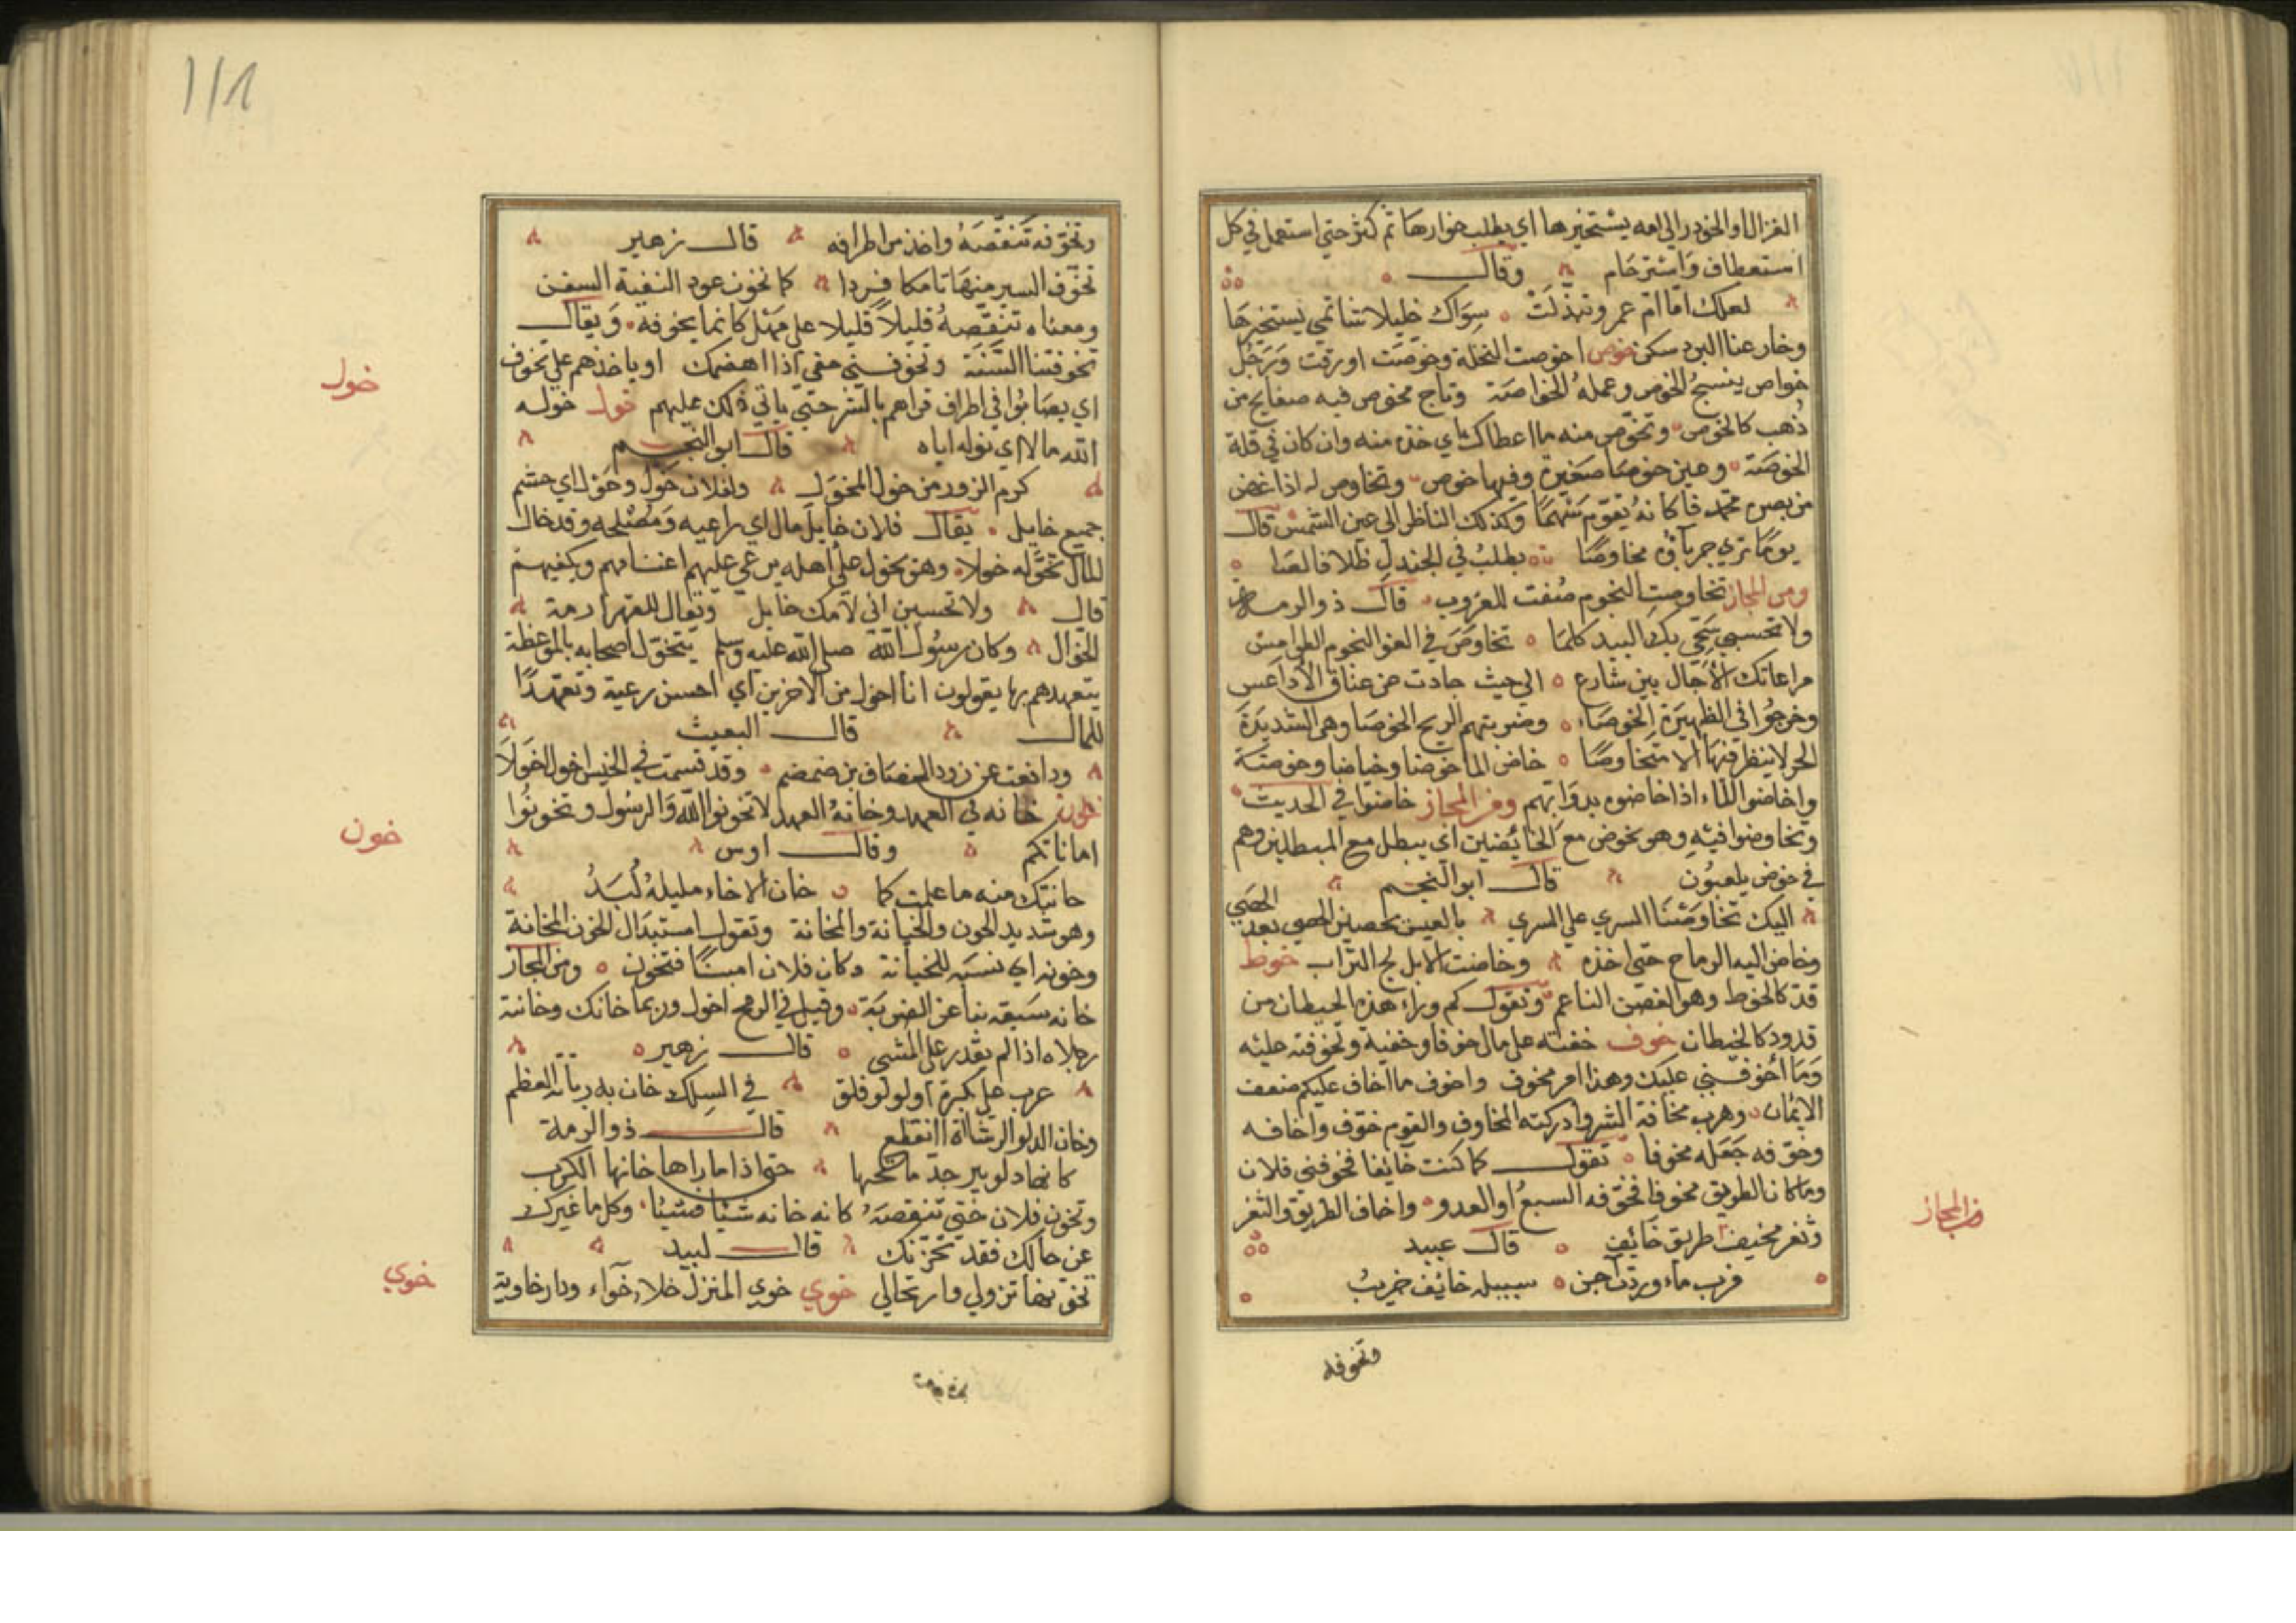 الغزال او الخوذر الى امه يستخيرها اي يطلب خوارها ثم كثر حتي استعمل في كل
استعطاف وَاسْترحَام وقال
لعلك امّا امّ عمرو تبدّلَتْ سِوَاك خليلا شاتمي تستخيرهَا
وخار عنا البرد سكن خوص اخوصت النخلة وخوصَت اورقت وَرَجُل
خواص ينسجُ الخوص وعملهُ الخواصَة وتاج مخوص فيه صفايح من
ذُهب كالخوص وتخوّص منه ما اعطاك اي خذه منه وان كان في قلة
الخوصَة وعين خوصَا صَغيرة وفيها خوص وتخاوص له اذا غض
من بصره محمد فا كانهُ يقوّم سَهمًا وكذلك الناظر الى عين الشمس قال
يومًا تري حرباؤه مخاوصًا يطلبُ في الجندل ظلا قالصَا
ومن المجاز تخاوصت النجوم صَغت للغروب قال ذو الرمة
ولا تحسبي شجّي بك البيد كلمَا تخاوَصَ في الغور النجوم الطوامس
مراعاتك الآجال بين شارع الي حيث حادت عن عناق الأداعس
وخرجُوا في الظهيَرة الخوصَاء وضربتهم الريح الخوصَا وهي الشديدَة
الحر لا ينظر فيهَا الا متخاوصًا خاض الما خوضا وخياضا وخوضة
واخاضوا الماء اذا خاضوه بدوَابهم ومن المجاز خاضوا في الحديث
وتخاوضوا فيْهِ وهو يخوض مع الخايضين اي يبطل مع المبطلين وهم
في خوض يلعبُون قال ابو النجم
اليك تخاوَضْنَا السري علي السري بالعيس يحصين الحصي بعد الحصَي
وخاض اليه الرماح حتى اخذه وخاضت الابل لج التراب خوط
قد كالخوط وهو الغصن الناعم وتقول كم وراء هذه الحيطان من
قدود كالخيطان خوف خفته على مالي خوفا وخفية وتخوفته عليْه
وَمَا أخوفني عليك وهذا امر مخوف واخوف ما اخاف عليكم ضعف
الايمان وهرب مخافة الشر وادركته المخاوف والقوم خوّف واخافه
وخوّفه جَعَله مخوفا تقول كما كنت خايفا فخوفني فلان
وما كان الطريق مخوفا فخوّفه السبعُ او العدو واخاف الطريق والثغر
وثغر مخيف طريق خائِف قال عبيد
فرب ماء وردت آجن سبيله خائِف خَرِيبُ
من المجاز
وتخوفه
وتخوّفه تنقّصَهُ واخذ من اطرافه قال زهير
تخوّف السير منهَا تامكا قردا كما تخوف عود النبعة السفن
ومعناه تنقّصهُ قليلاً قليلا على مَهْل كانما يخوفه وَيقال
تخوفتنا السَّنَة وتخوفني حقي اذا اهضمك او ياخذهم على تخوف
اي يصَابوُا في اطراف قراهم بالشر حتي ياتي ذلك عليهم خول خوّله
الله مالا اي نوله اياه قال ابو النجم
كوم الذري من خول المخوّل ولفلان خَوَل وخَوَل اي حشم
جميع خايل يقال فلان خايل مال اي راعيه وَمُصْلحه وقد خال
المال تخوّله خولا وهو يخول علي أهله يرعي عليهم اغنامهم ويكفيهم
قال ولا تحسبين اني لامك خايل ويقال للقهرا رمة
الخوال وكان رسُول الله صلي الله عليه وسلم يتخوّل اصحابه بالموعظة
يتعهدهم بها يقولون انا اخول من الاخرين اي احسن رعية وتعهدًا
للمال قال البعيث
ودافعت عن زود المضاف بن ضمضم وقد قسمت في الخيس اخول اخوَلاَ
خون خانه في العهد وخانهُ العهد لا تخونوا الله وَالرسُول وتخونُوا
اماناتكم وقال اوس
خانتك منه ما علمت كما خان الاخاء خليلهُ لُبَدُ
وهو شديد الخون والخيانة والمخانة وتقول استبدَال الخون المخانة
وخونه اي نسبَه للخيانة وكان فلان امينًا فتخون ومن المجاز
خانه سَيفه نبا عن الضريبَة وقيل في الرمح اخوك وربما خانك وخانته
رجلاه اذا لم يقدر على المشي قال زهير
غرب على بكرة أو لولو فلق في السِلك خان به رباته النظم
وخان الدلو الرشا اذا انقطع قال ذو الرمة
كانها دلو بير جدّ ماتحها حتي اذا ما راها خانها الكرب
وتخون فلان حقي تنقصَهُ كانه خانه شيْا فشيْئا وكل ما غيرك
عن حالك فقد تخوّنك قال لبيد
تخوّنها نزولي وارتحالي خوي خوي المنزل خلا خوَاء ودار خاوية
خول
خون
خوي